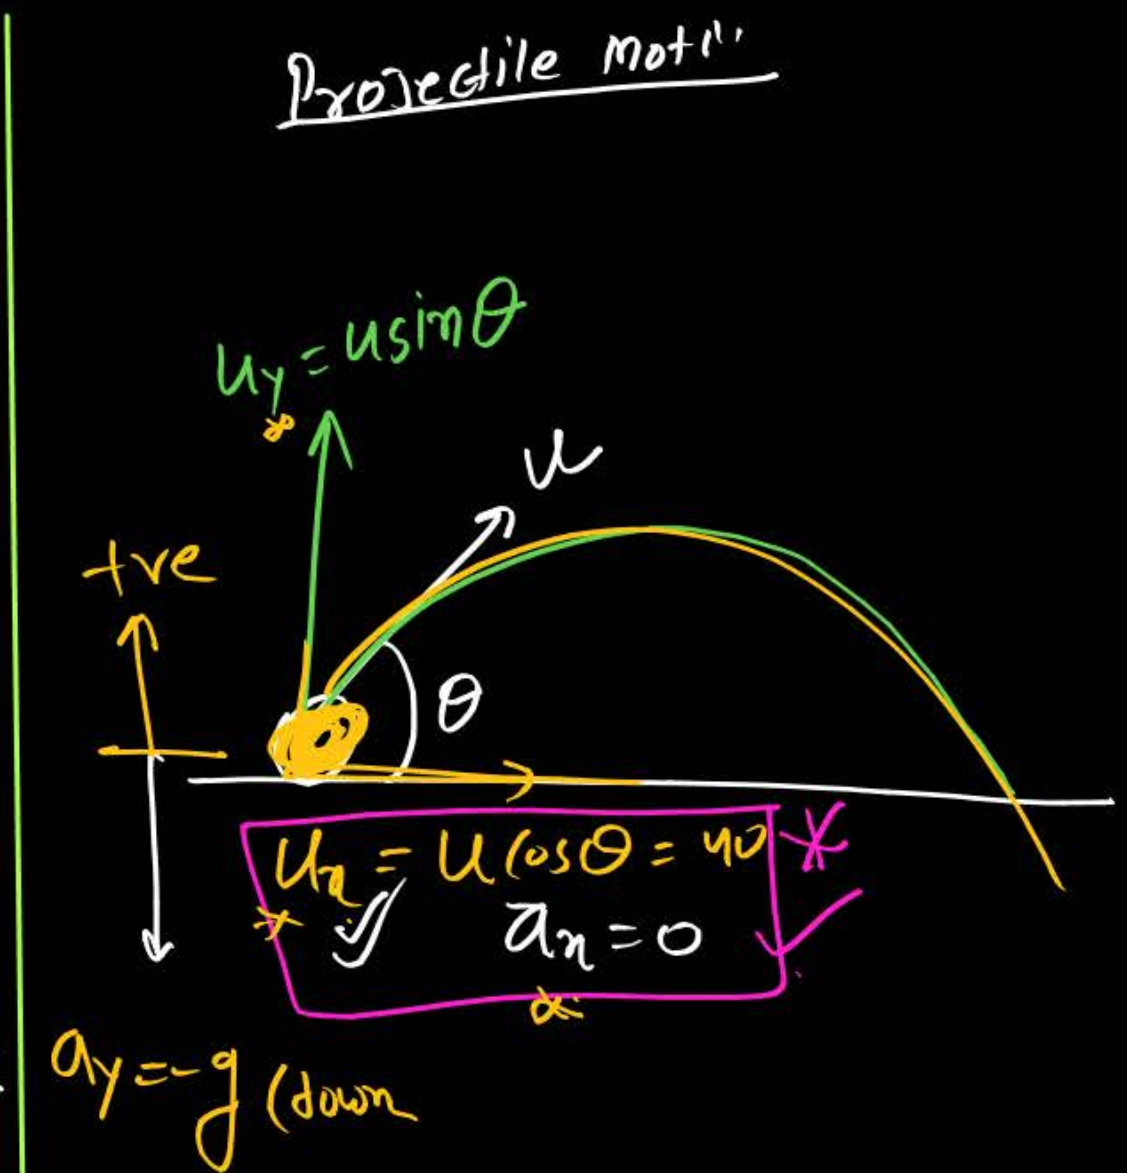 Projectile Moti
uy = usinθ
u
+ve
θ
ux = u cosθ = 40
ax = 0
ay = -g (down